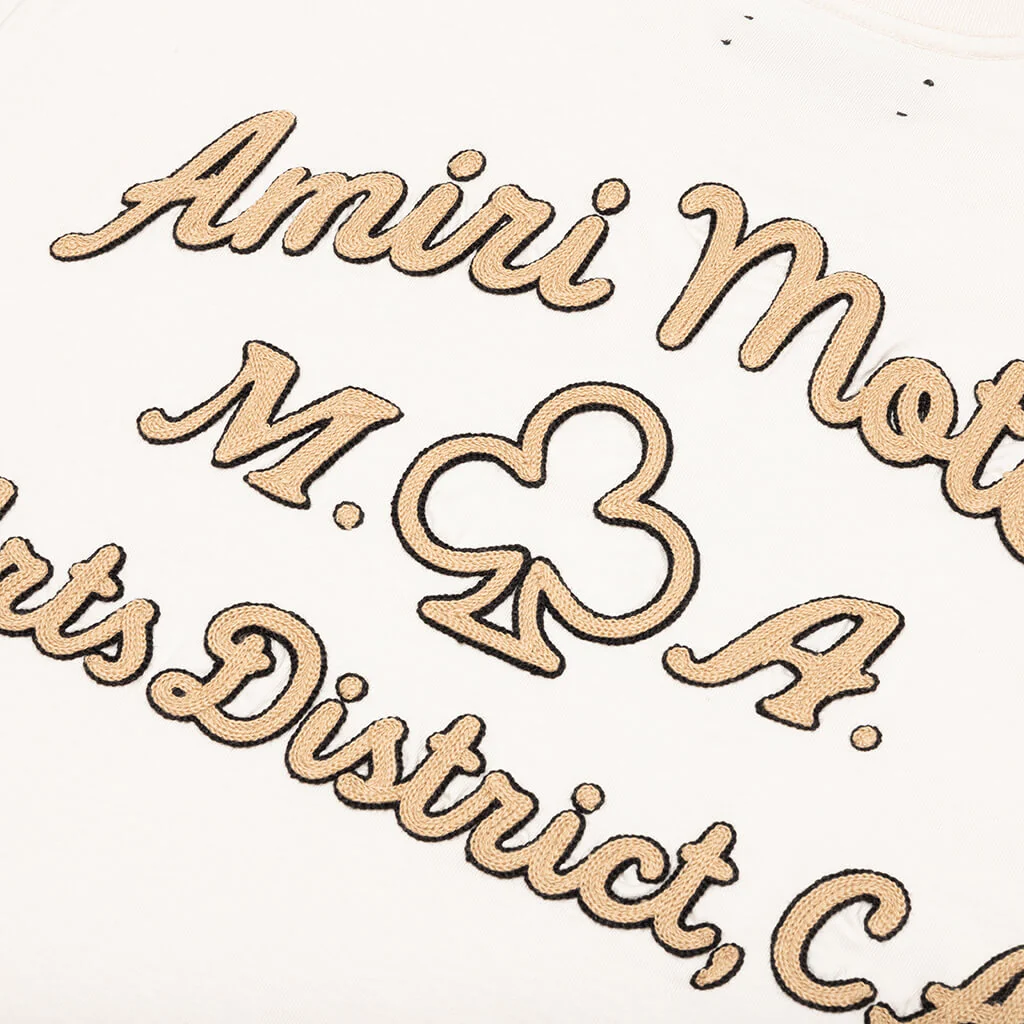 Amiri Mot
M. A.
rts District, C.A